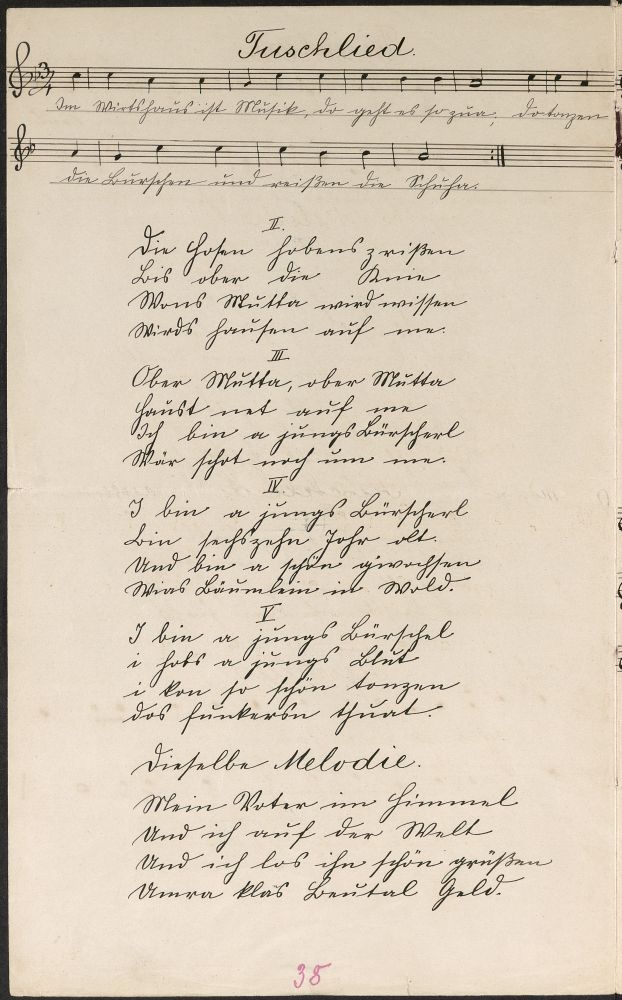 Tuschlied.
Im Wirtshaus ist Musik, do geht es so zua; do tonzen
die Burschen und reißen die Schuha.
II.
Die Hosen hobens zrißen
Bis ober die Knie
Wons Mutta wird wissen
Wirds hausen auf me.
III
Ober Mutta, ober Mutta
Haust net auf me
Ich bin a jungs Bürscherl
Wär schot noch um me.
IV
I bin a jungs Bürscherl
Bin sechszehn Johr olt.
Und bin a schön giwochsen
Wias Bäumlein in Wold.
V
I bin a jungs Bürschel
i hobs a jungs Blut
i kon so schön tonzen
dos funkersn thuat.
Dieselbe Melodie.
Mein Voter im Himmel
Und ich auf der Welt
Und ich los ihn schön grüßen
Umra klas Beutal Geld.
38